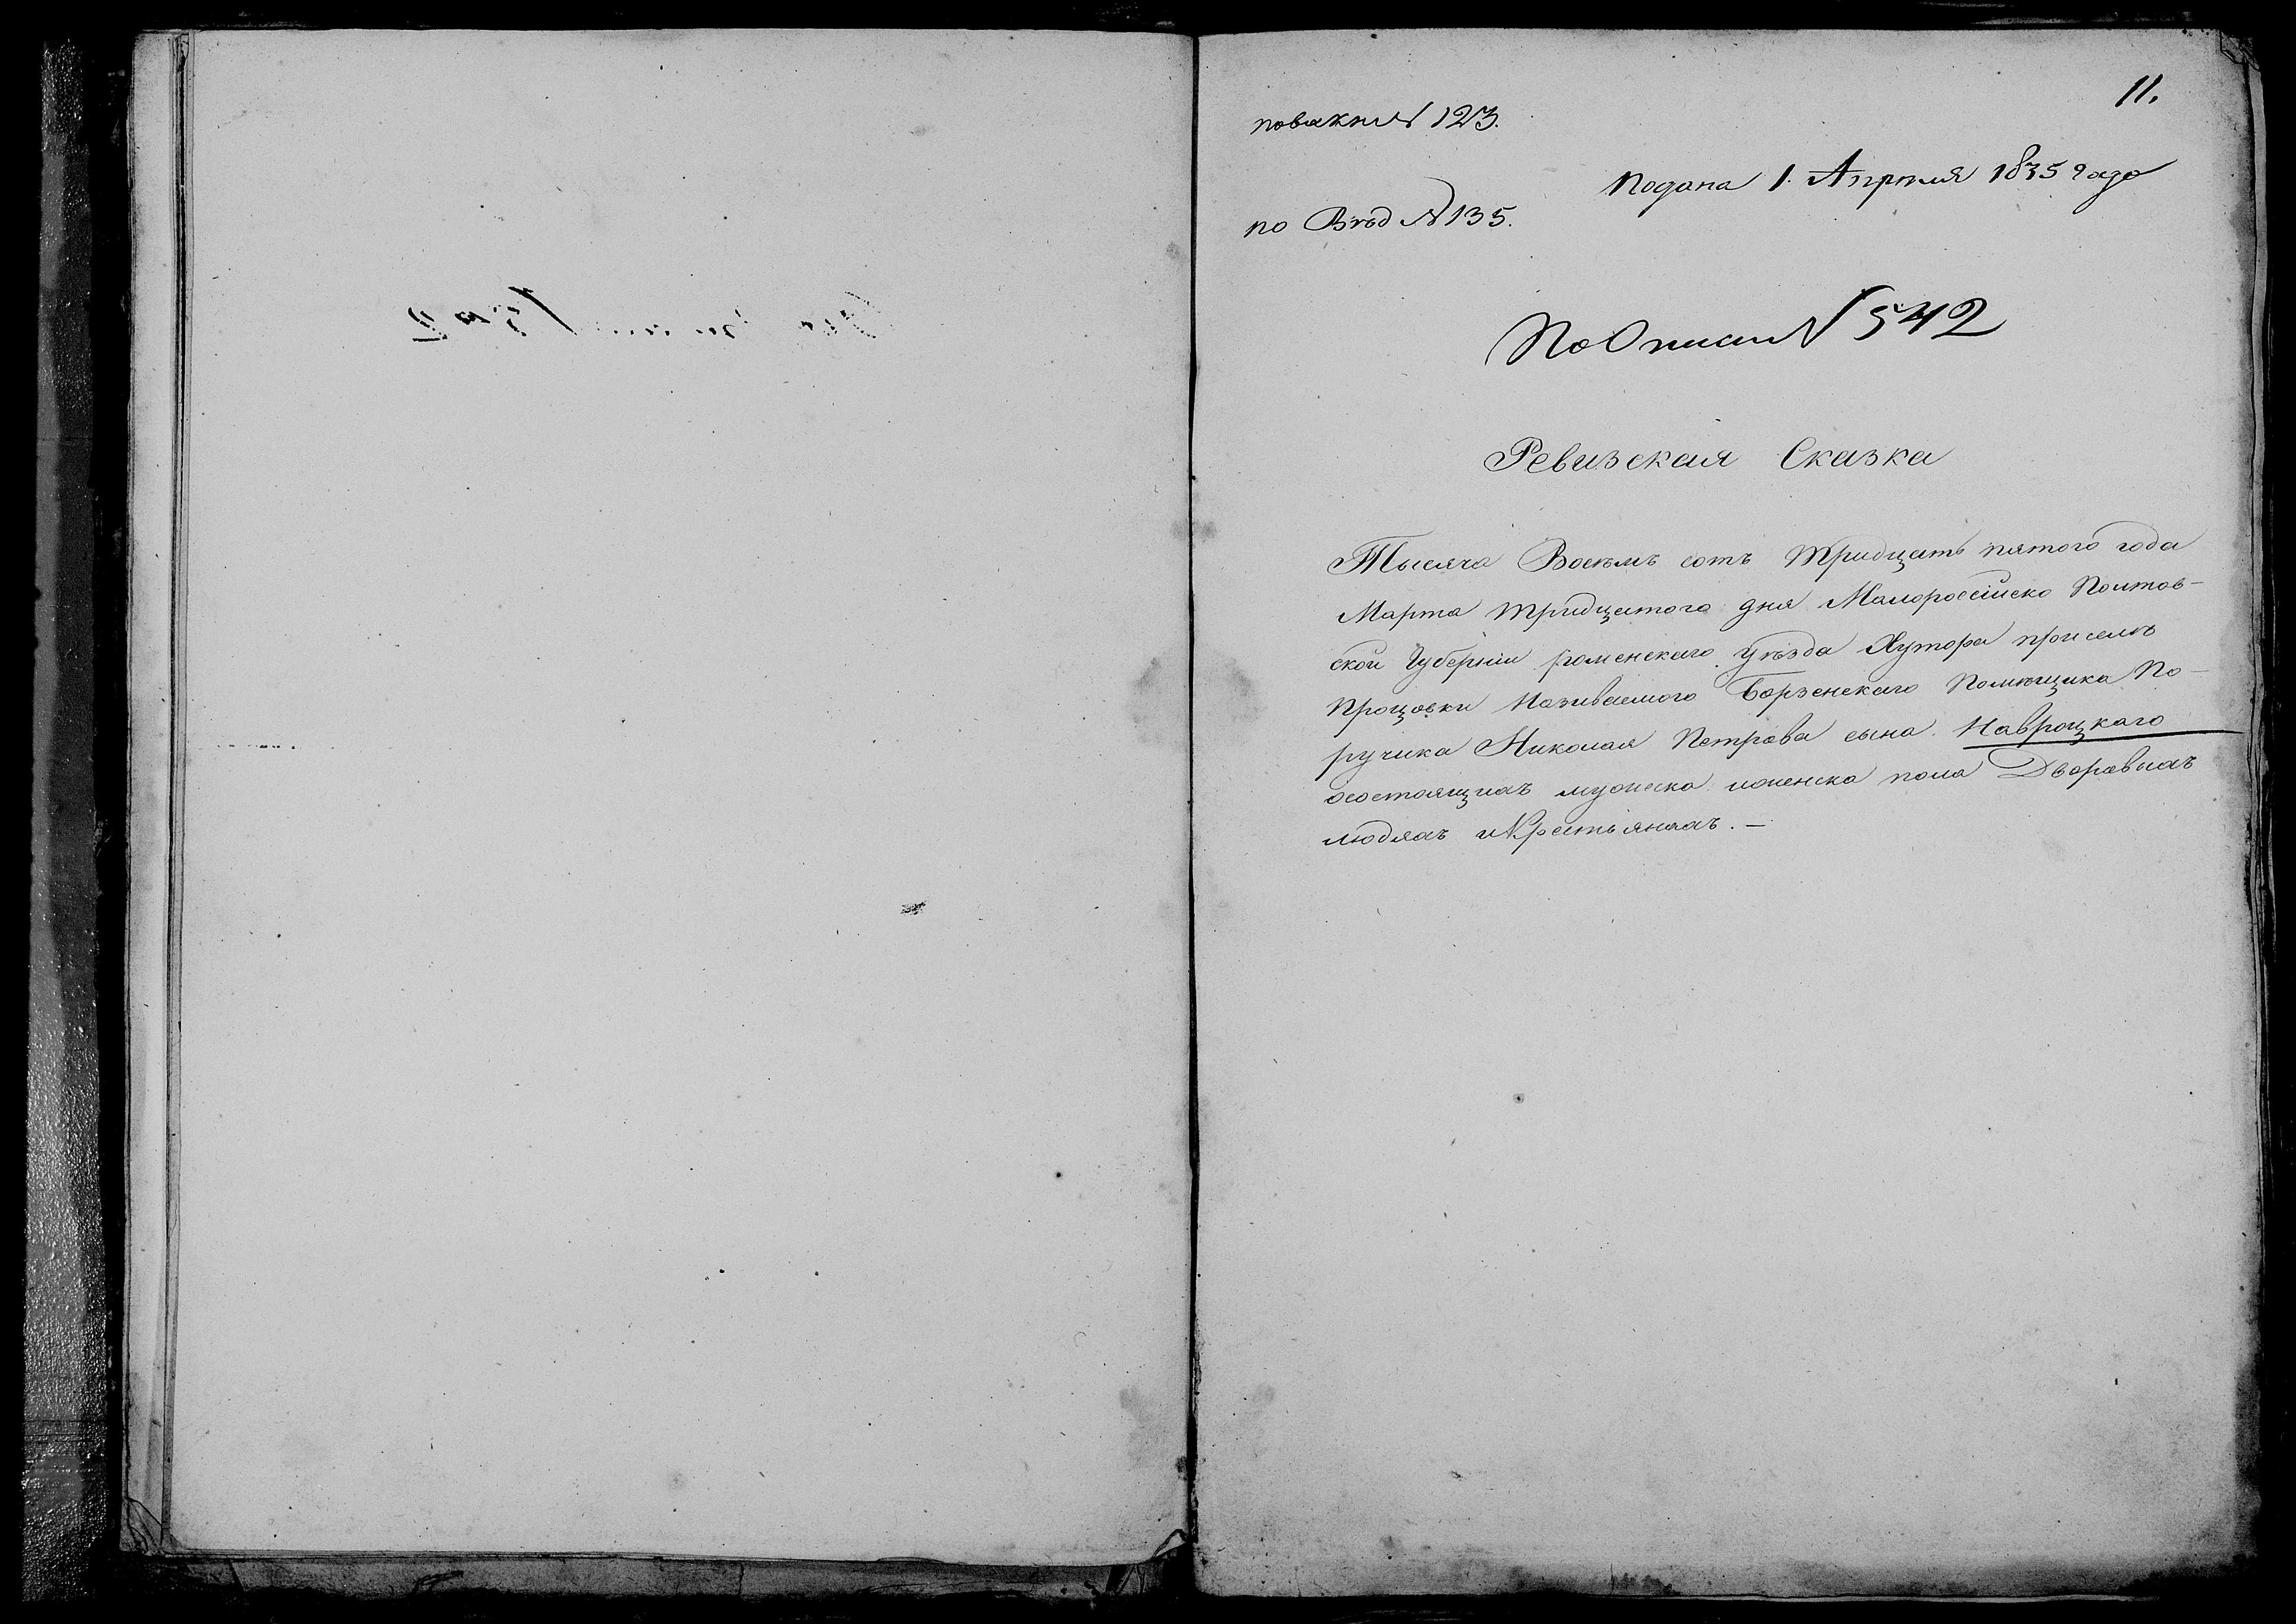 11.
№ 123.
Подана 1. Апрѣля 1835 года
по Вѣд № 135.
По Описи № 542
Ревизская Сказка
Тысяча Восемъ сотъ тридцать пятого года
Марта тридцатого дня Малоросійско Полтав-
ской Губерніи роменскаго уѣзда Хутора при селѣ
Процовки Називаемого Борзенскаго Помѣщика По-
ручика Николая Петрова сына Навроцкаго
осостоящихъ мужеска иженска пола Дворовыхъ
людяхъ иКрестьянахъ. —